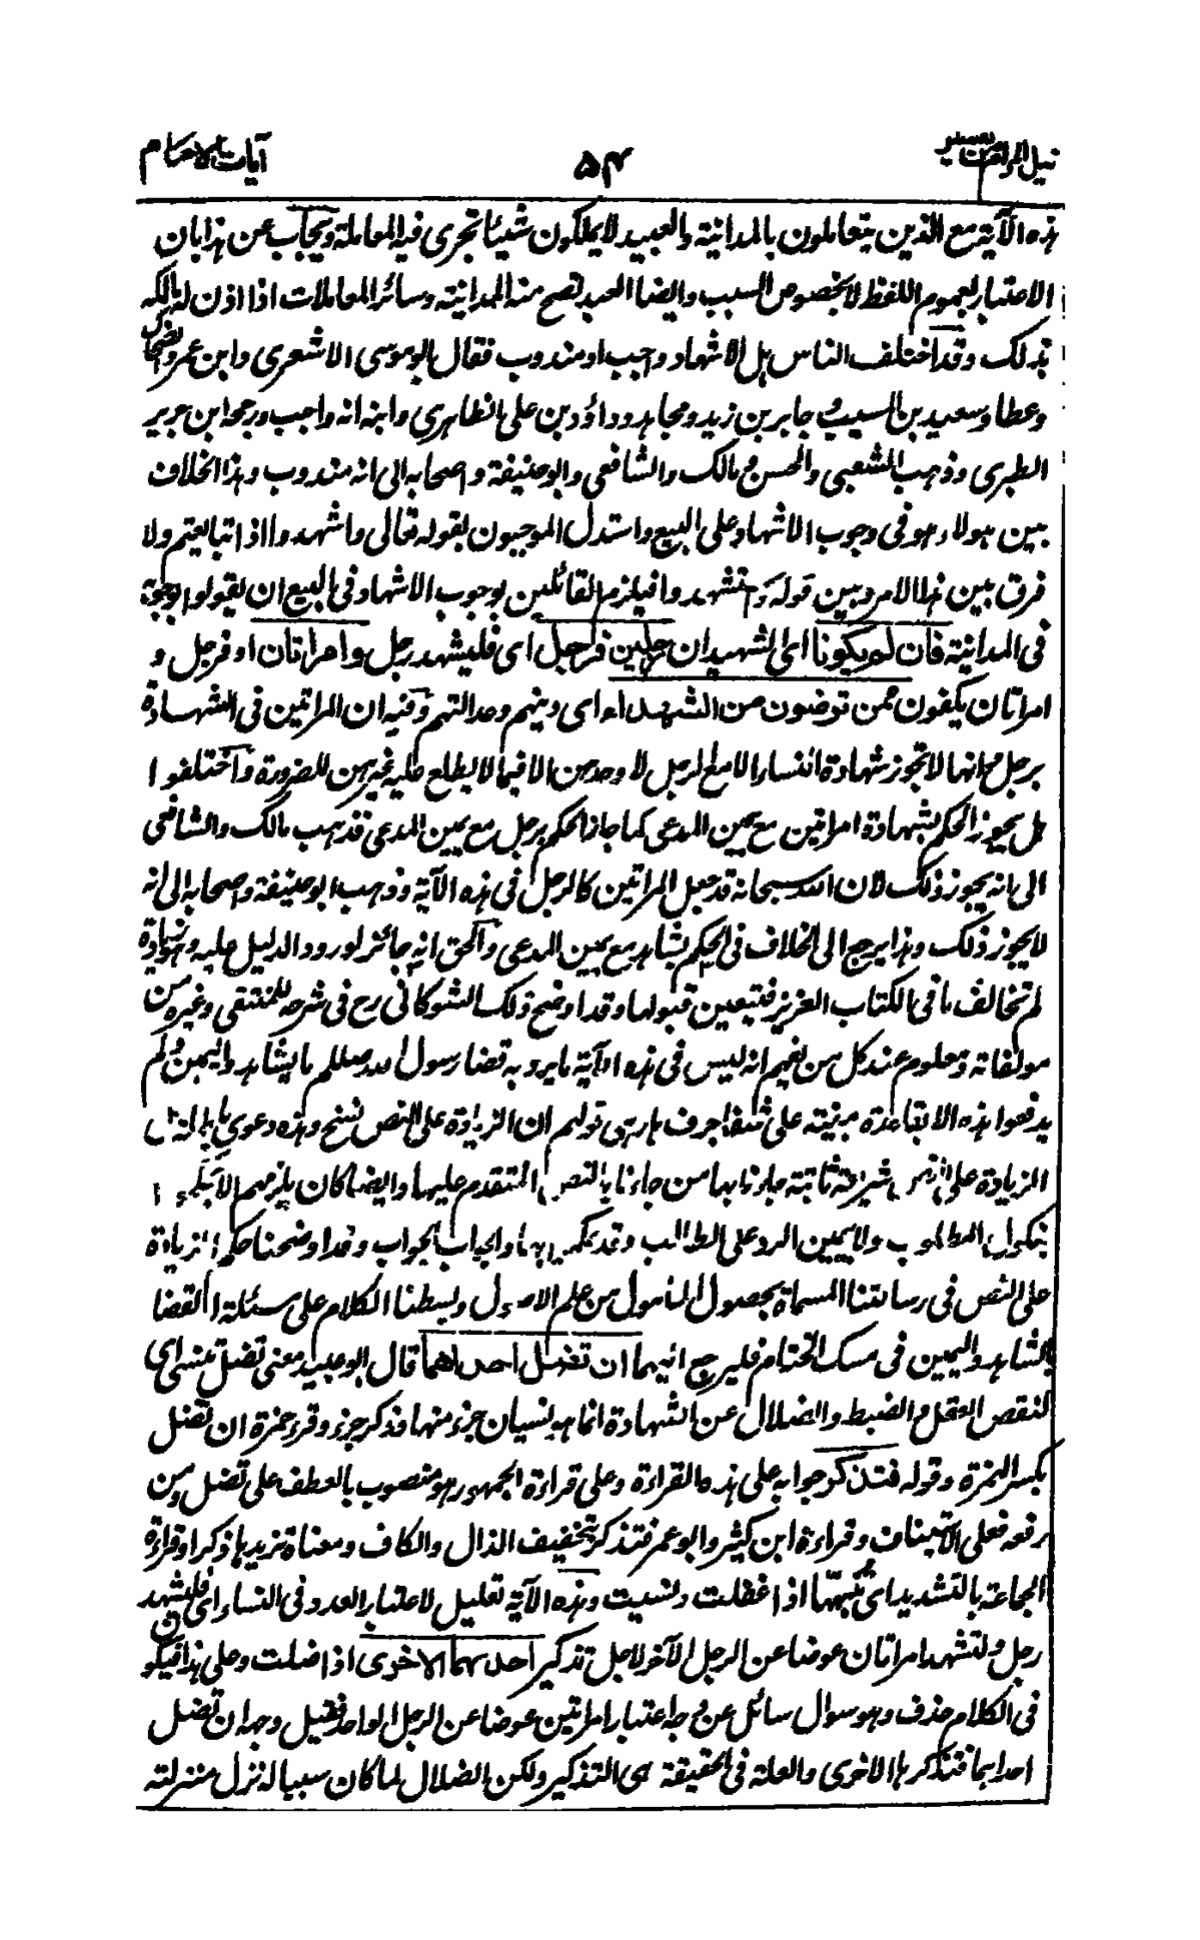 نيل المرام من تفسير
۵۴
آيات الاحكام
هذه الآية مع الذين يتعاملون بالمداينة والعبيد لا يملكون شيئا تجري فيه المعاملة ويجاب عن هذا بان
الاعتبار لعموم اللفظ لا بخصوص السبب وايضا العبد تصح منه المداينة وسائر المعاملات اذا اذن له مالكه
بذلك وقد اختلف الناس هل الاشهاد واجب او مندوب فقال ابو موسى الاشعري وابن عمر والضحاك
وعطاء وسعيد بن المسيب وجابر بن زيد ومجاهد وداؤد بن علي الظاهري وابنه انه واجب ورجحه ابن جرير
الطبري وذهب الشعبي والحسن ومالك والشافعي وابو حنيفة واصحابه الى انه مندوب وهذا الخلاف
بين هولاء هو في وجوب الاشهاد على البيع واستدل الموجبون بقوله تعالى واشهدوا اذا تبايعتم ولا
فرق بين هذا الامر وبين قوله واستشهدوا فيلزم القائلين بوجوب الاشهاد في البيع ان يقولوا بوجوبه
في المداينة فان لم يكونا اي الشهيدان رجلين فرجل اي فليشهد رجل وامراتان او فرجل و
امراتان يكفون ممن ترضون من الشهداء اي دينهم وعدالتهم وفيه ان المراتين في الشهادة
برجل وانها لا تجوز شهادة النساء الا مع الرجل لا وحدهن الا فيما لا يطلع عليه غيرهن للضرورة واختلفوا
هل يجوز الحكم بشهادة امراتين مع يمين المدعي كما جاز الحكم برجل مع يمين المدعي فذهب مالك والشافعي
الى انه يجوز ذلك لان الله سبحانه قد جعل المراتين كالرجل في هذه الآية وذهب ابو حنيفة واصحابه الى انه
لا يجوز ذلك وهذا يرجع الى الخلاف في الحكم بشاهد مع يمين المدعي والحق انه جائز لورود الدليل عليه وهو زيادة
لم تخالف ما في الكتاب العزيز فتيعين قبولها وقد اوضح ذلك الشوكاني رح في شرحه للمنتقى وغيره من
مولفاته ومعلوم عند كل من يفهم انه ليس في هذه الآية ما يرد به قضاء رسول الله صللم بالشاهد واليمين ولم
يدفعوا هذه الا بقاعدة مبنية على شفا جرف هار هي قولهم ان الزيادة على النص نسخ وهذه دعوى باطلة بل
الزيادة على النص شريعة ثابتة جاءنا بها من جاءنا بالنص المتقدم عليها وايضا كان يلزمهم ان لا يحكموا
بنكول المطلوب ولا يمين الرد على الطالب وقد حكموا بهما والجواب الجواب وقد اوضحنا حكم الزيادة
على النص في رسالتنا المسماة بحصول المامول من علم الاصول وبسطنا الكلام على مسئلة القضاء
بالشاهد واليمين في مسك الختام فليرجع اليهما ان تضل احداهما قال ابو عبيد معنى تضل تنسى اي
لنقص العقل والضبط والضلال عن الشهادة انما هو نسيان جزء منها وذكر جزء وقرء حمزة ان تضل
بكسر الهمزة وقوله فتذكر جوابه على هذه القراءة وعلى قراءة الجمهور هو منصوب بالعطف على تضل ومن
رفعه فعلى الاستيناف وقراءة ابن كثير وابو عمر فتذكر بتخفيف الذال والكاف ومعناه تزيدها ذكرا وقراءة
الجماعة بالتشديد اي تنبهها اذا غفلت ونسيت وهذه الآية تعليل لاعتبار العدد في النساء اي فليشهد
رجل ولتشهد امراتان عوضا عن الرجل الآخر لاجل تذكير احداهما الاخرى اذا ضلت وعلى هذا فيكون
في الكلام حذف وهو سوال سائل عن وجه اعتبار امراتين عوضا عن الرجل الواحد فقيل وجهه ان تضل
احداهما فتذكرها الاخرى والعلة في الحقيقة هي التذكير ولكن الضلال لما كان سببا له نزل منزلته